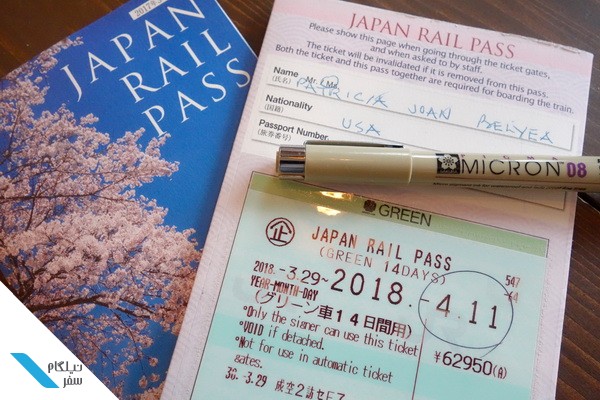 JAPAN
RAIL
PASS
JAPAN RAIL PASS
Please show this page when going through the ticket gates,
and when asked to by staff.
The ticket will be invalidated if it is removed from this pass.
Both the ticket and this pass together are required for boarding the train.
Name Mr. Ms.
(氏名)
PATRICIA JOAN BELYEA
Nationality
(国籍)
USA
Passport Number
(旅券番号)
MICRON 08
GREEN
企 JAPAN RAIL PASS
(GREEN 14DAYS)
547
-64
2018. -3.29~ 2018. -4.11
YEAR-MONTH-DAY
(グリーン車14日間用)
°Only the signer can use this ticket
°VOID if detached.
°Not for use in automatic ticket
gates.
¥62950(A)
30. -3.29
نیلگام
سفر